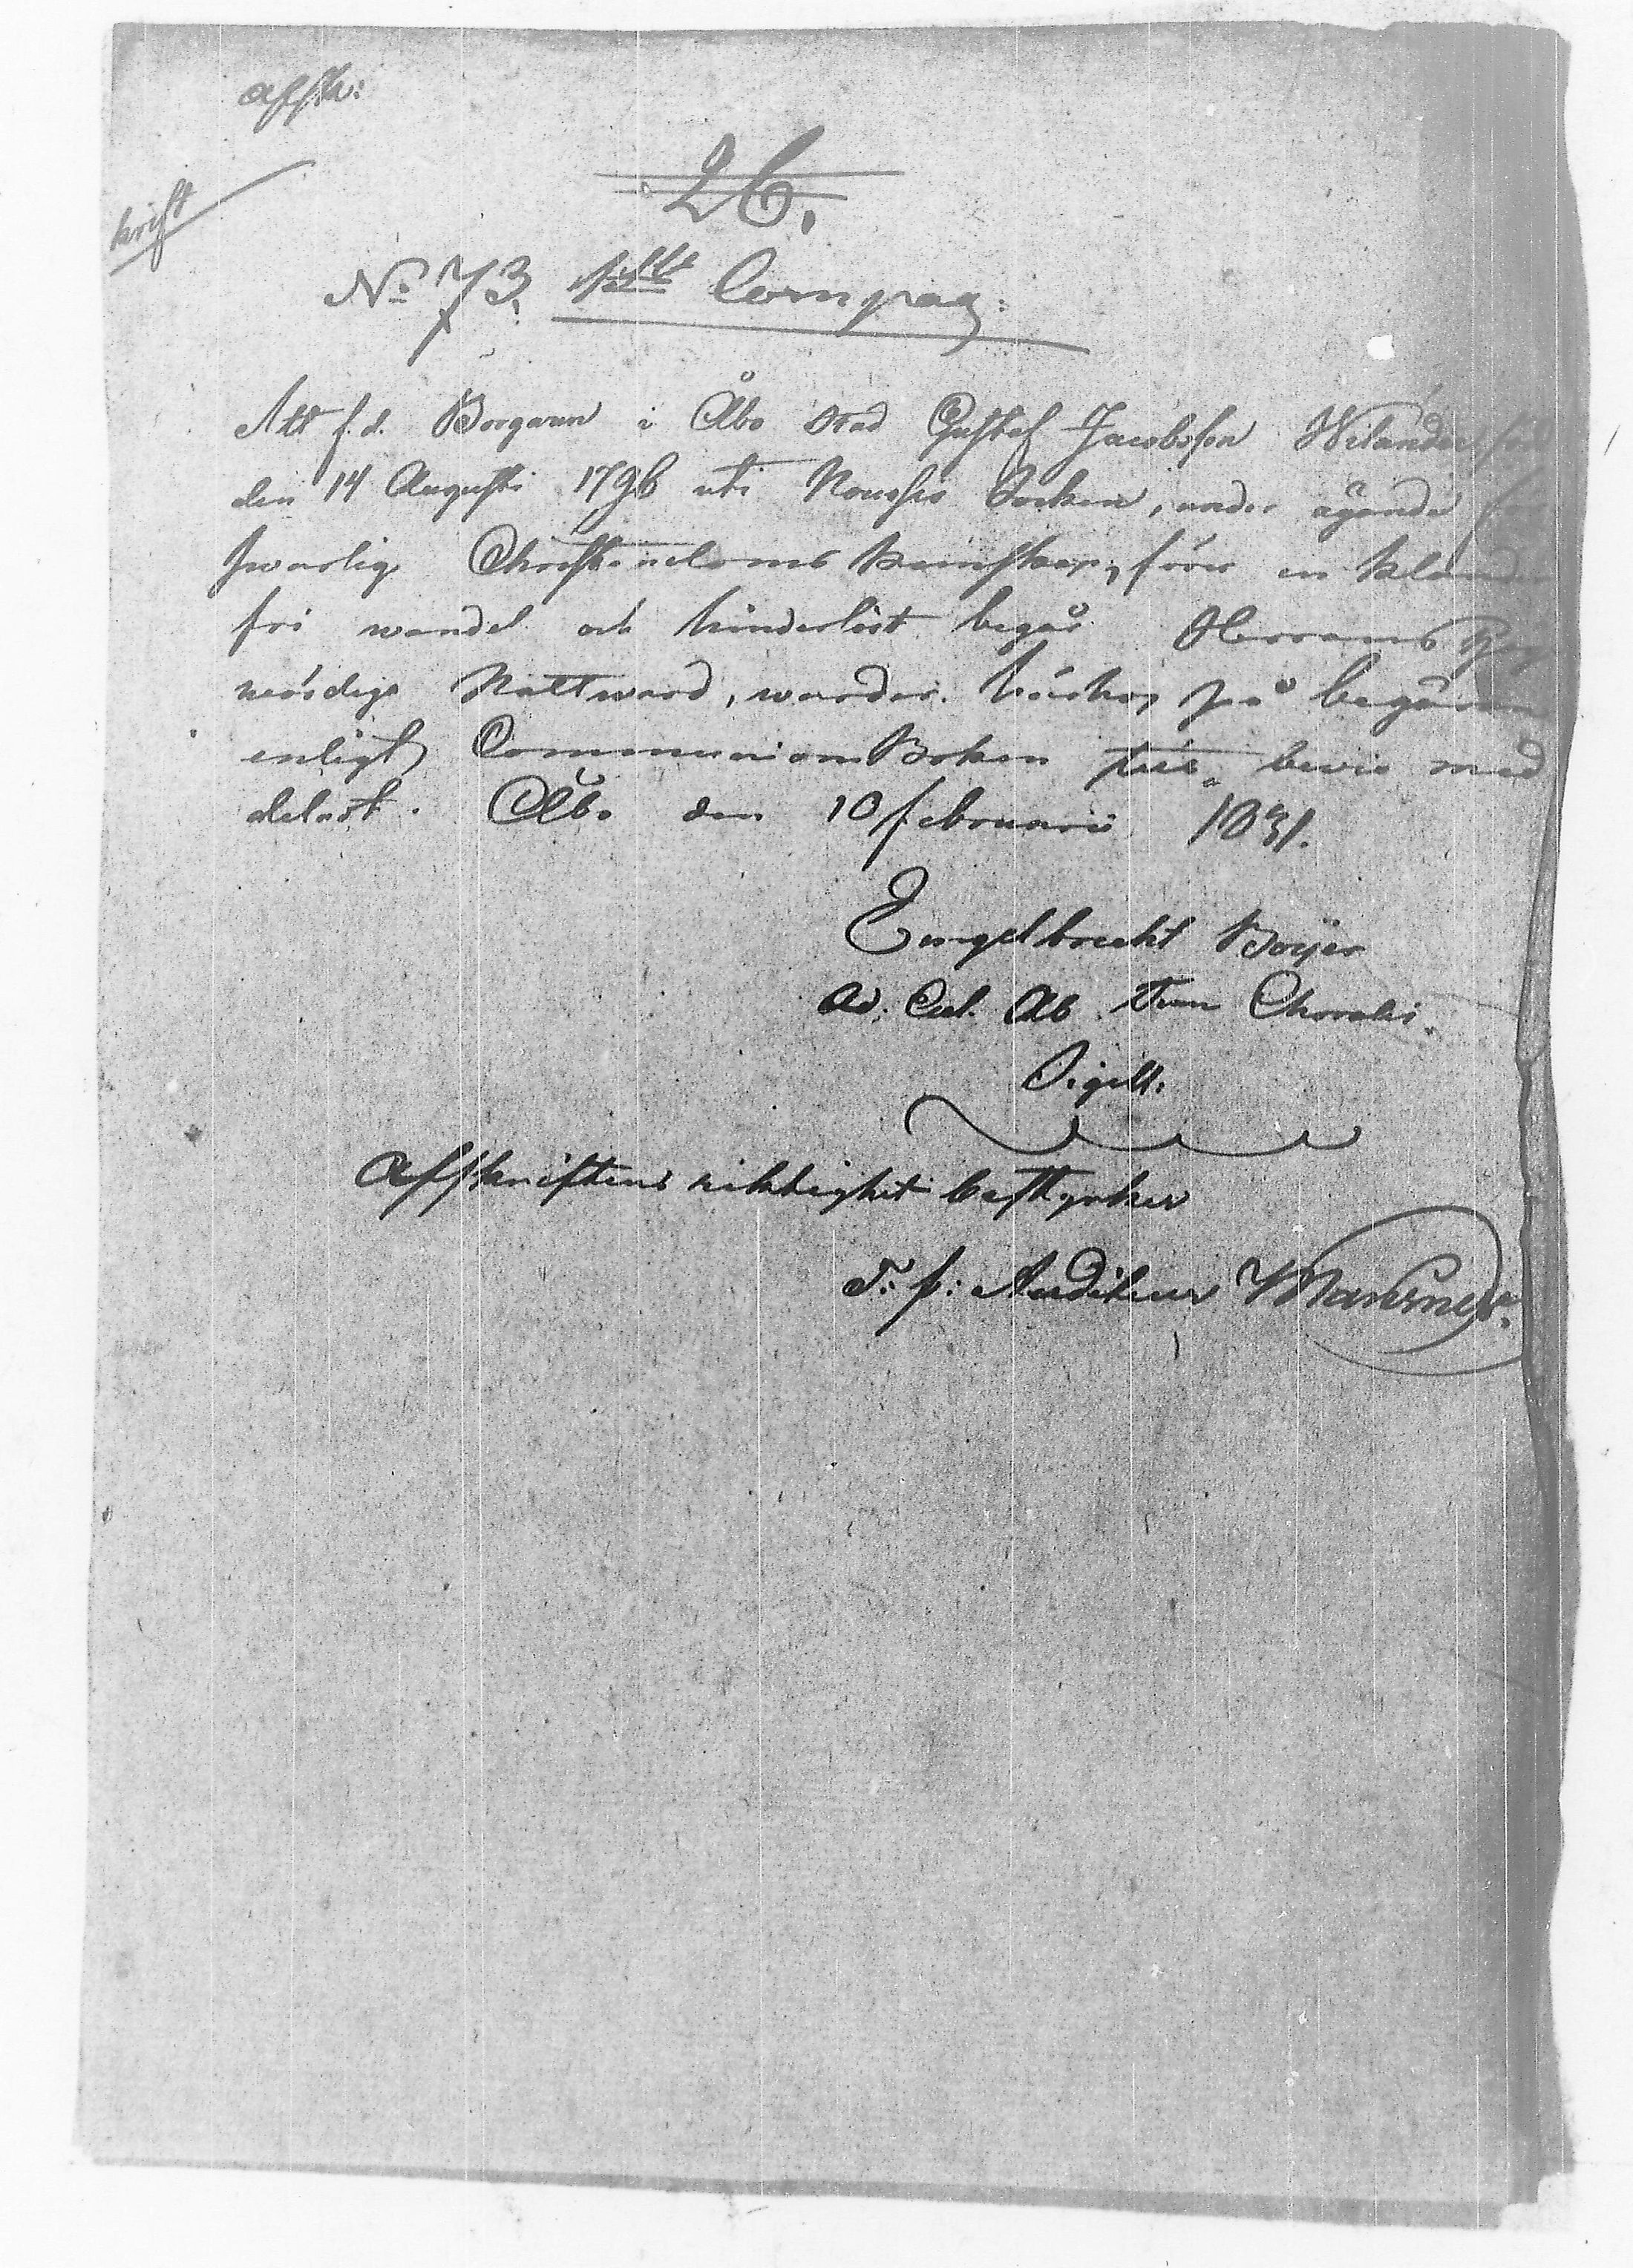 Affsk:
krift
26.
No 73. 1sta Compag:
Att f.d. Borgaren i Åbo Stad Gustaf Jacobsson Wilander född
den 14 Augusti 1796 uti Nousis Socken, under ägande för
swarlig Christendoms kunskap, förer en klander
fri wandel och hinderlöst begår Herrans Hög
wördiga Nattward, warder härhos på begäran
enligt CommunionBoken bewis med
delat. Åbo den 10 februarii 1831.
Engelbrecht
Ad. Ecel. Ab
Sigill.
Affskriftens riktighet bestyrker
T: f: Auditeur